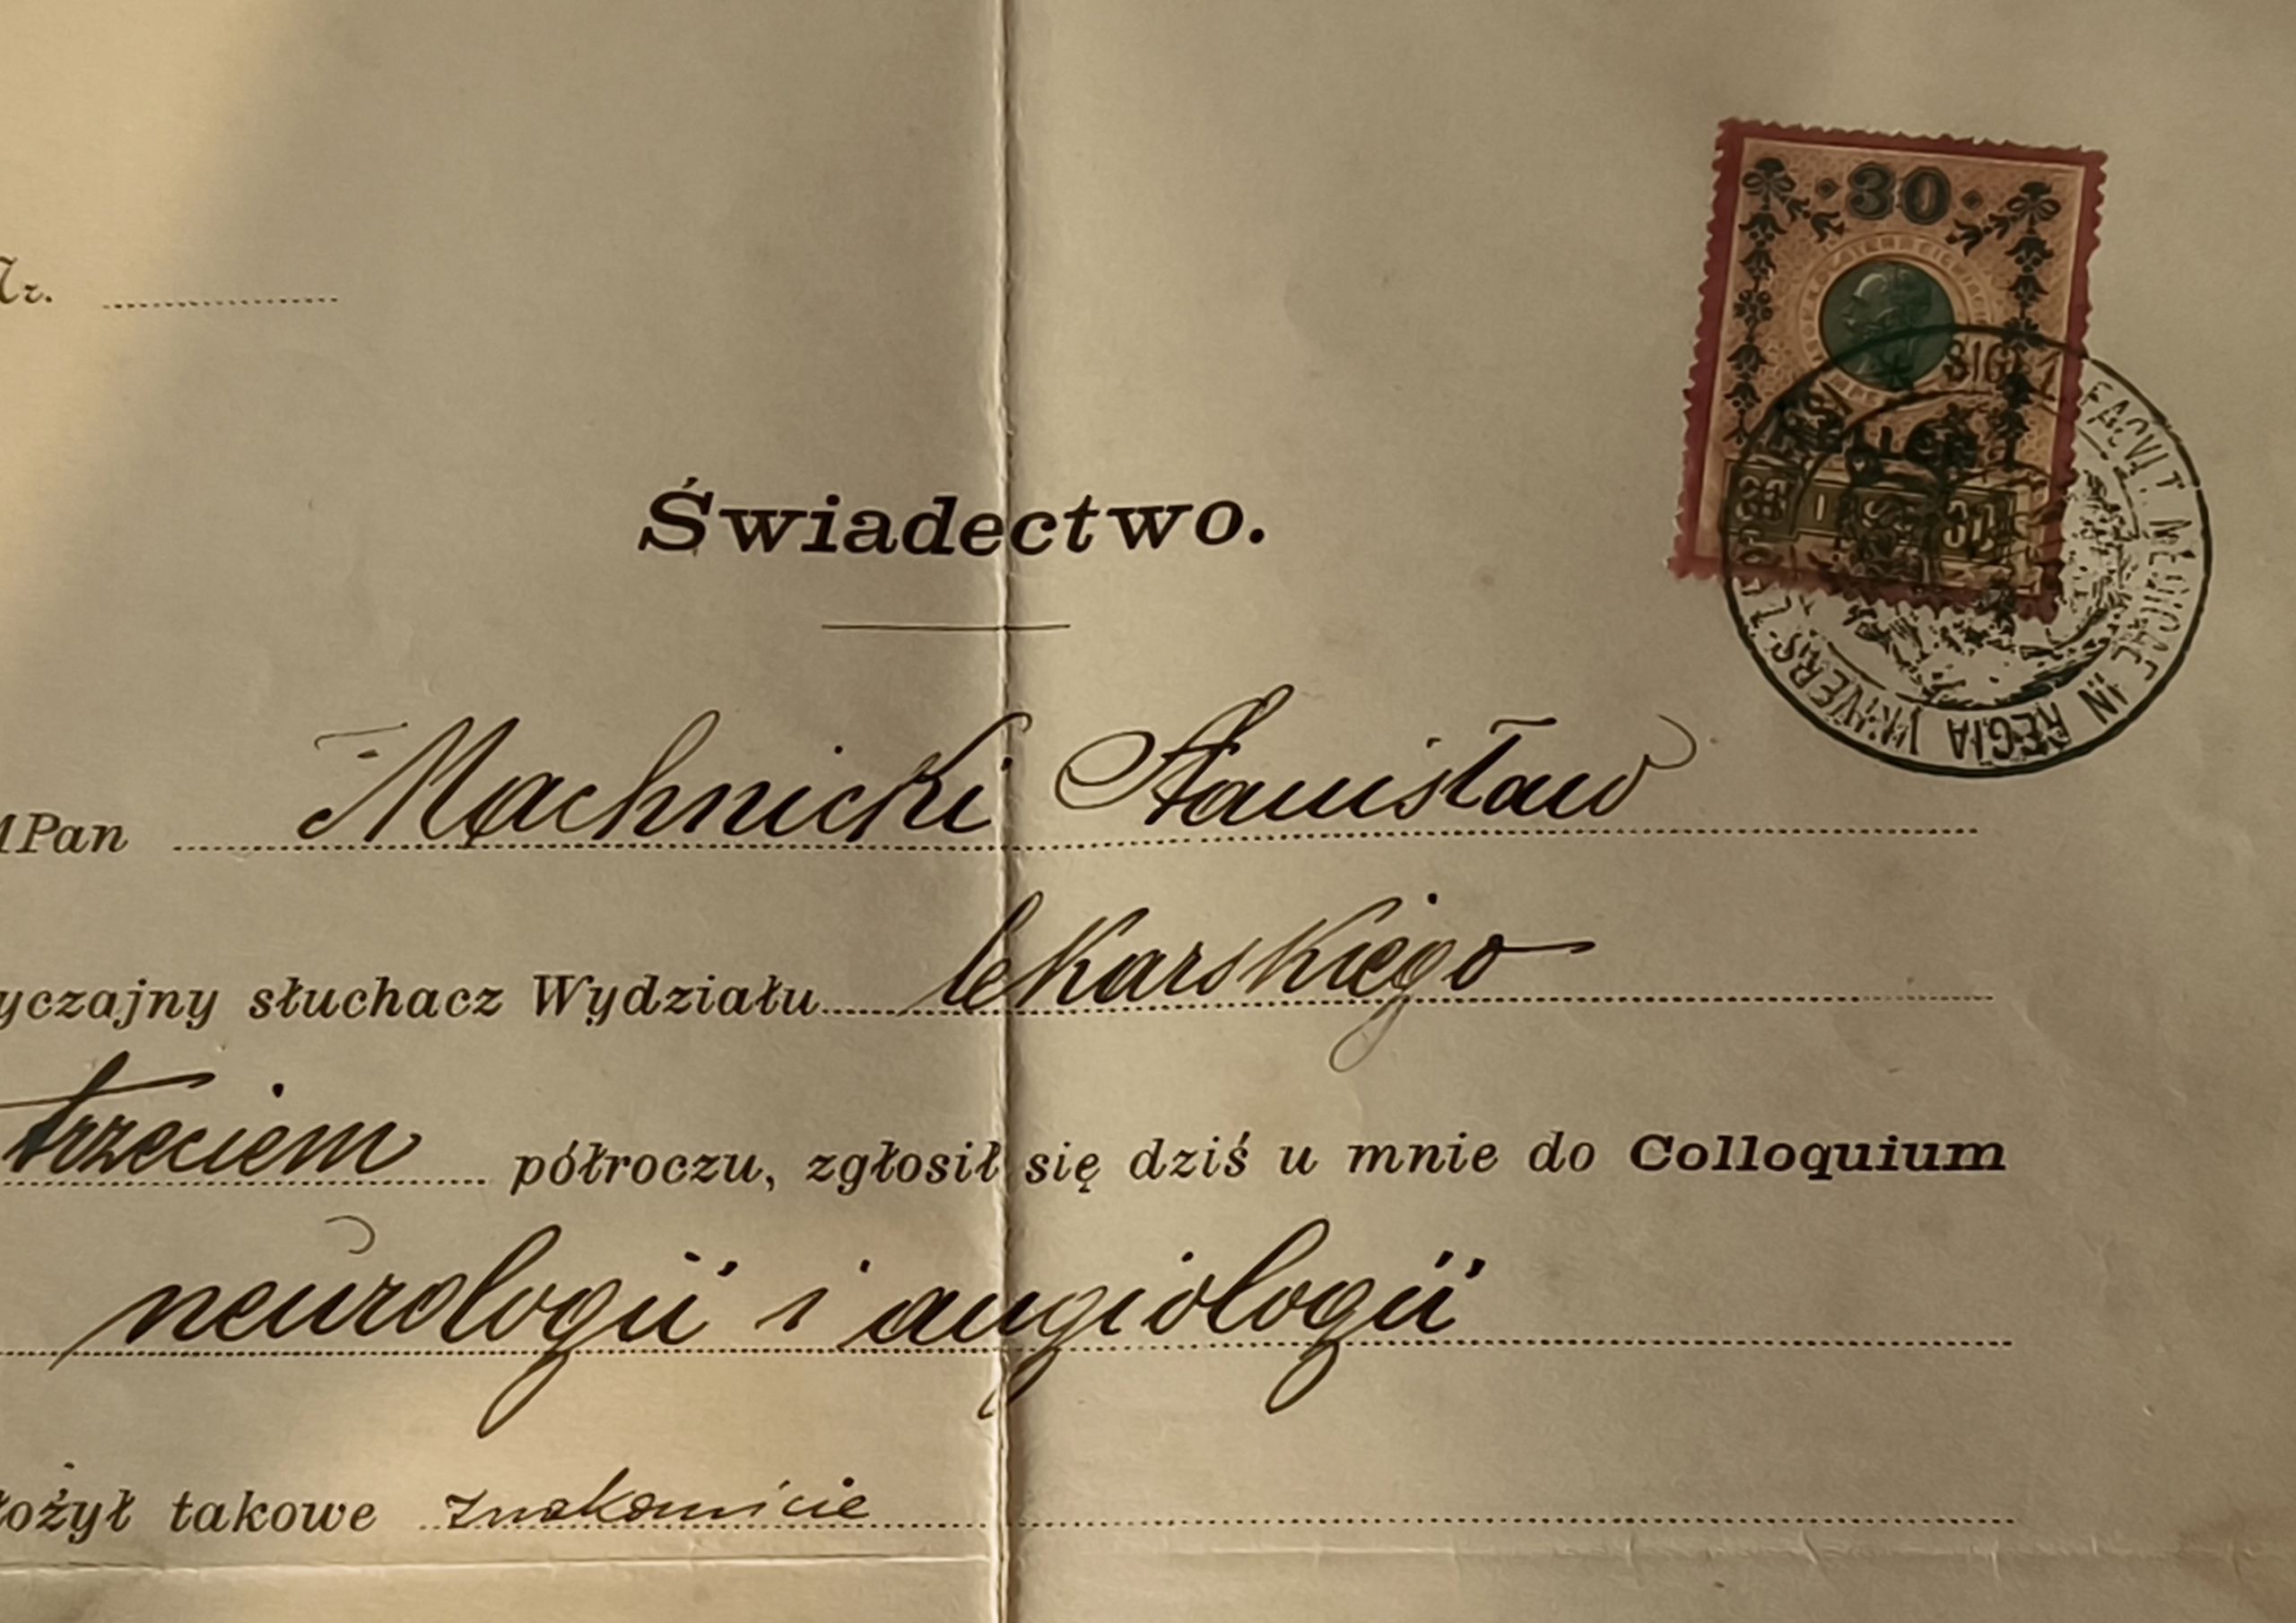 Nr.
30
HELLER
Świadectwo.
SIGILL FACVLT MEDICAE IN REGIA VNIVERS
Pan Machnicki Stanisław
yczajny słuchacz Wydziału lekarskiego
trzeciem półroczu, zgłosił się dziś u mnie do Colloquium
neurologii i angiologii
łożył takowe znakomicie